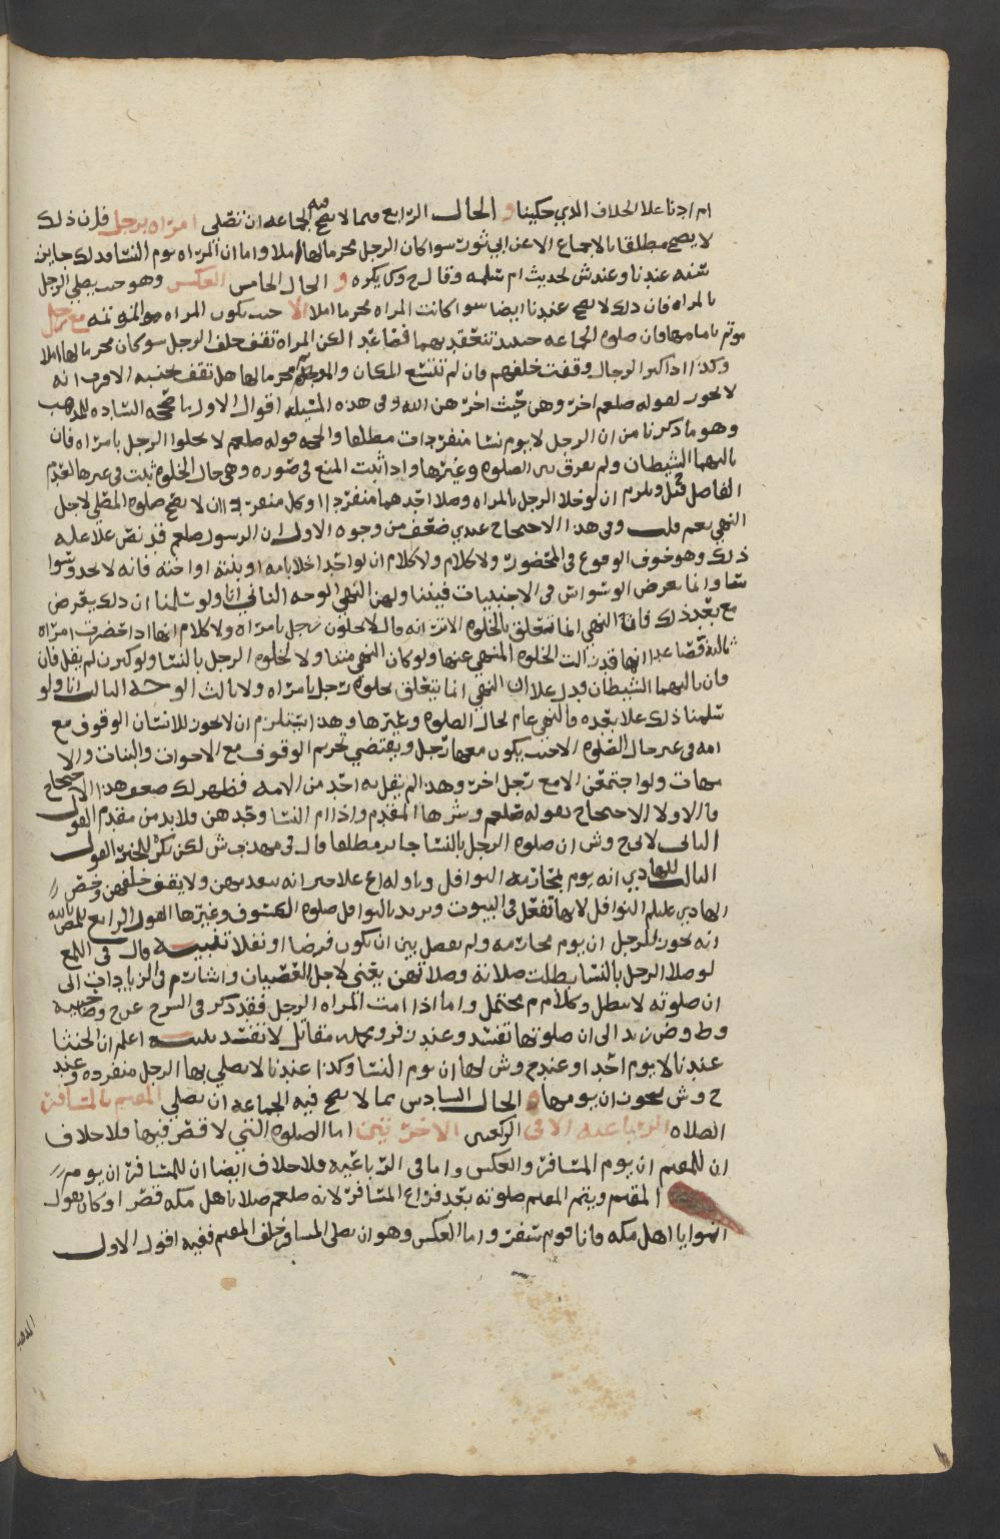 ام ادنا علا الخلاف الذي حكينا و الحال الرابع مما لا يصح فيه الجماعه ان تصلي امراه برجل فان ذلك
لا يصح مطلقا بالاجماع الا عن ابي ثور سوا كان الرجل محرما لها ام لا واما ان المراه توم النسا فذلك جاين
سنه عندنا وعند ش لحديث ام سلمه وقال ح وك يكره و الحال الخامس العكس وهو حيث يصلي الرجل
بالمراه فان ذلك لا يصح عندنا ايضا سوا كانت المراه محرما ام لا الا حيث تكون المراه موتمه مع رجل
موتم بامامها فان صلوه الجماعه حينيذ تنعقد بهما فصاعدا لكن المراه تقف خلف الرجل سوا كان محرما لها ام لا
وكذا اذا كثر الرجال وقفت خلفهم فان لم تتسع المكان والرجل محرما لها هل تقف بجنبه الاقرب انه
لا يجوز لقوله صلعم اخر وهن حيث اخر هن الله وفي هذه المسيله اقوال الاول ما صححه الساده للمذهب
وهو ما ذكرنا من ان الرجل لا يوم نسا منفردات مطلقا والحجه قوله صلعم لا يخلوا الرجل بامراه فان
ثالثهما الشيطان ولم يفرق بين الصلوه وغيرها واذا ثبت المنع في صوره وهي حال الخلوه ثبت في غيرها لعدم
الفاصل قيل ويلزم ان لو خلا الرجل بالمراه وصلا احدهما منفردا او كل منفردا ان لا تصح صلوه المصلي لاجل
النهي نعم قلت وفي هذا الاحتجاح عندي ضعف من وجوه الاول ان الرسول صلعم قد نص علا علة
ذلك وهو خوف الوقوع في المحضور ولا كلام ولا كلام ان لو احد اخلا بامه او بنته او اخته فانه لا يحدوسوا
سا وانما يعرض الوسواس في الاجنبيات فبينا ولهن النهي الوجه الثاني انا ولو سلمنا ان ذلك يعرض
مع بعد ذلك فان النهي انما تعلق بالخلوه الا ترا انه قال لا يخلون رجل بامراه ولا كلام انها اذا حضرت امراه
ثالثه فصاعدا انها قد زالت الخلوه المنهي عنها ولو كان النهي متناولا لخلوه الرجل بالنسا ولو كثرن لم يقل فان
فان ثالثهما الشيطان فدل علا ان النهي انما يتعلق بخلوه رجل بامراه ولا ثالث الوجه الثالث انا ولو
سلمنا ذلك علا بعده فالنهي عام لحال الصلوه وغيرها وهذا يستلزم ان لا يجوز للانسان الوقوف مع
امه في غير حال الصلوه الا حيث يكون معها رجل ويقتضي تحريم الوقوف مع الاخوات والبنات والا
مهات ولو اجتمعن الا مع رجل اخر وهذا لم يقل به احد من الامه فظهر لك ضعف هذا الاحتجاح
فالاولا الاحتجاح بقوله صلعم وشرها المقدم واذا ام النسا وحدهن ولا بد من مقدم القول
الثاني لا ي ح وش ان صلوه الرجل بالنسا جايز مطلقا قال في مهذب ش لكن يكره للخبر القول
الثالث للهادي انه يوم بمحارمه النوافل وتاوله ع علا حيث انه يبعد بهن ولا يقف خلفهن وخص
الهادي عليلم النوافل لانها تفعل في البيوت ويريد بالنوافل صلوه الكسوف وغيرها القول الرابع للمنص بالله
انه يجوز للرجل ان يوم محارمه ولم يفصل بين ان تكون فرضا او نفلا تنبيــه قال في اللمع
لو صلا الرجل بالنسا بطلت صلاته وصلاتهن يعني لاجل العصيان واشار م في الزيادات الى
ان صلوته لا تبطل وكلام م محتمل واما اذا امت المراه الرجل فقد ذكر في الشرح عن ح وصاحبيه
وط وض زيد الى ان صلوتها تفسد وعند زفر ومحمد بن مقاتل لا تفسد تنبيــه اعلم ان الخنثا
عندنا لا يوم احدا وعند ح وش لها ان توم النسا وكذا عندنا لا يصلي بها الرجل منفرده وعند
ح وش يجوز ان يومها و الحال السادس مما لا يصح فيه الجماعه ان يصلي المقيم بالمسافر
الصلاه الرباعيه الا في الركعتين الاخرتين اما الصلوه التي لا قصر فيها فلا خلاف
ان للمقيم ان يوم المسافر والعكس واما في الرباعيه فلا خلاف ايضا ان للمسافر ان يوم
المقيم ويتم المقيم صلوته بعد فراغ المسافر لانه صلعم صلا باهل مكه قصر او كان يقول
اتموا يا اهل مكه فانا قوم سفر واما العكس وهو ان يصلي المسافر خلف المقيم ففيه اقول الاول